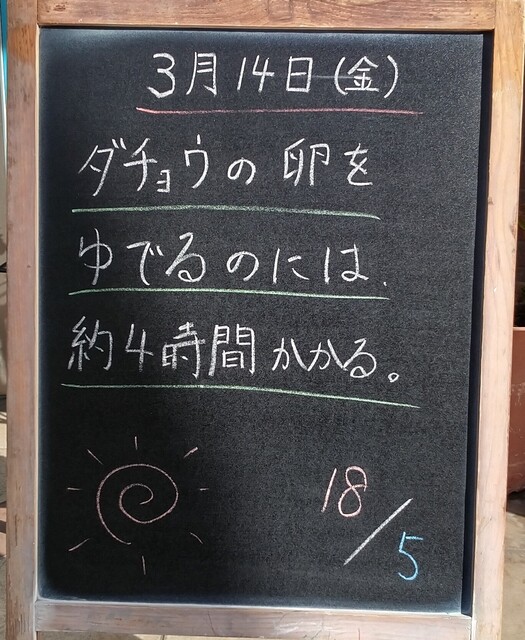 3月14日(金)
ダチョウの卵を
ゆでるのには、
約4時間かかる。
18/5